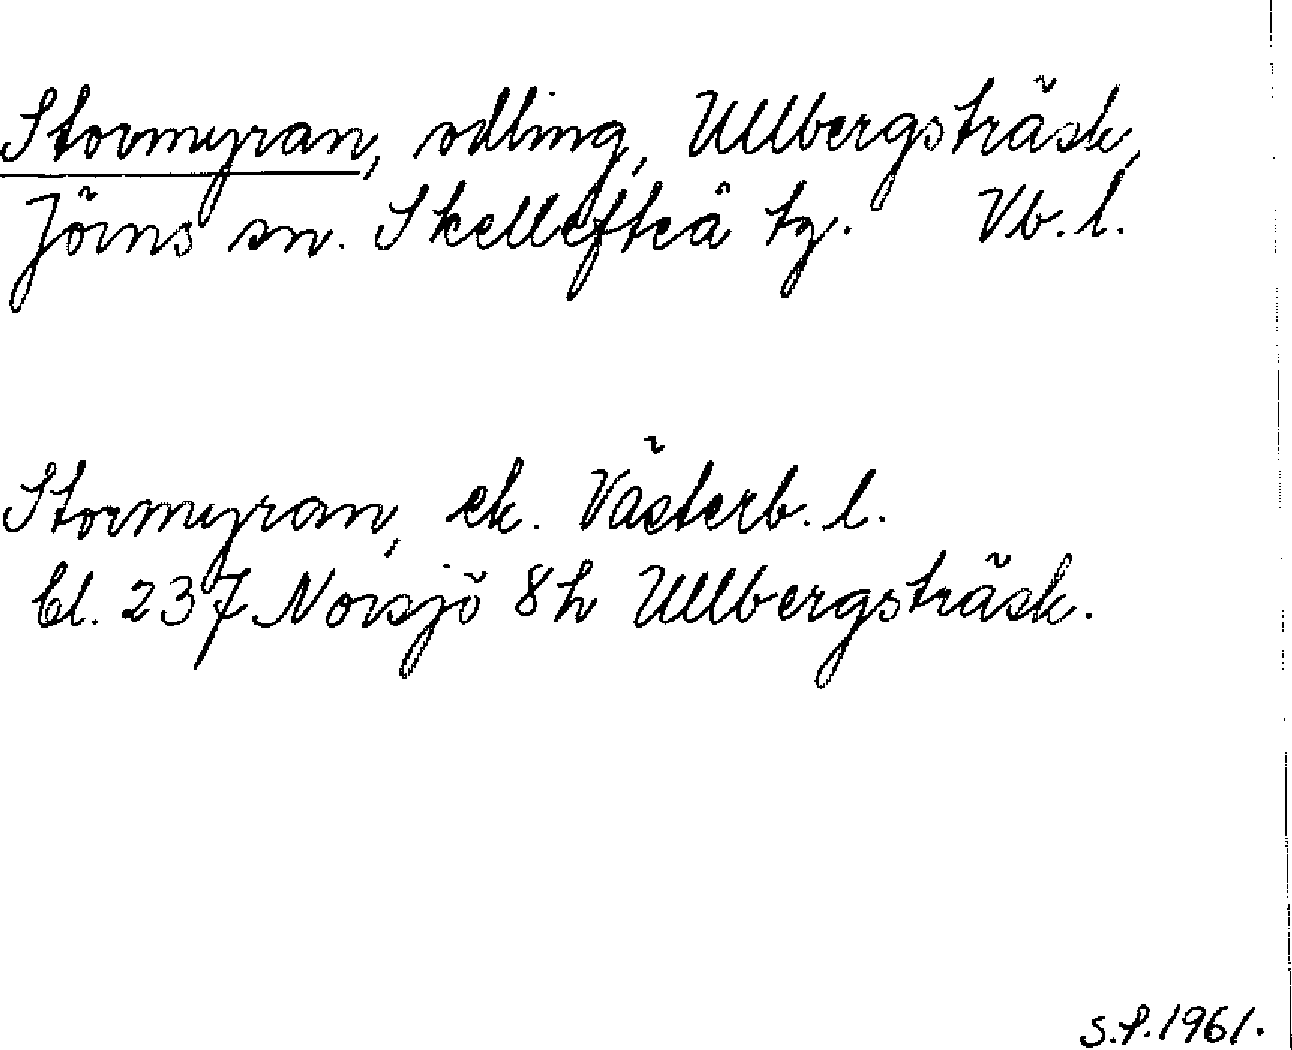 Stormyran, odling, Ullbergsträsk,
Jörns sn. Skellefteå tg. Vb. l.
Stormyran, ek. Västerb. l.
bl. 237 Norsjö 8h Ullbergsträsk.
S.P. 1961.